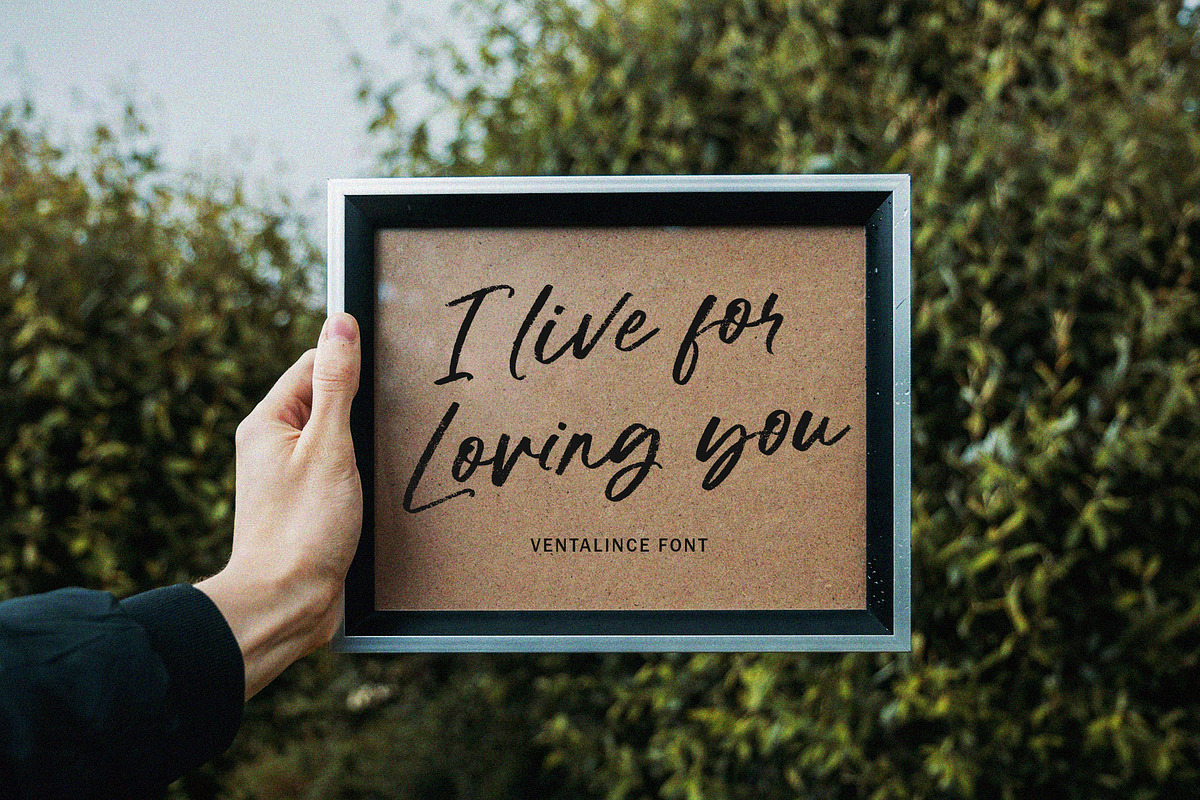 I live for
Loving you
VENTALINCE FONT